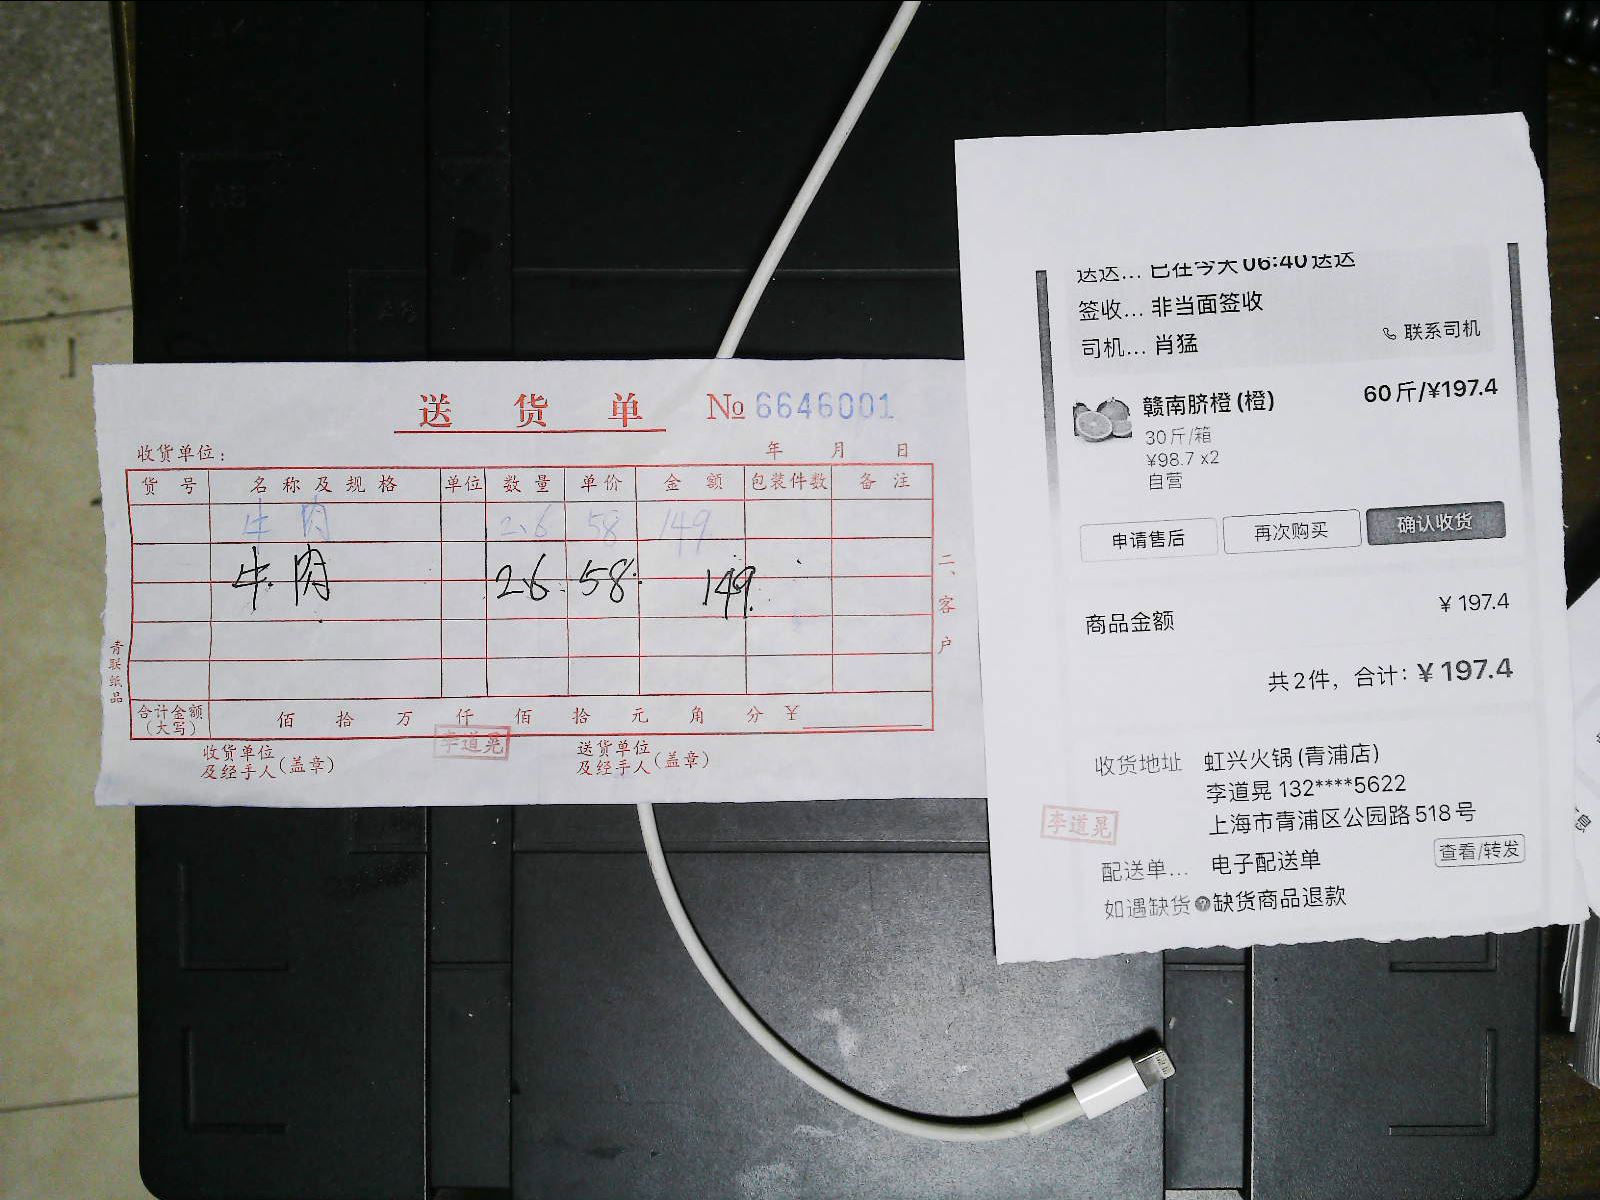 送货单 № 6646001
收货单位: 年 月 日
货号 名称及规格 单位 数量 单价 金额 包装件数 备注
牛肉 2.6 58 149
牛肉 2.6 58 149
合计金额(大写) 佰 拾 万 仟 佰 拾 元 角 分 ¥
收货单位及经手人(盖章) 送货单位及经手人(盖章)
李道晃
青联纸品
二、客户
送达… 已在今天06:40送达
签收… 非当面签收
司机… 肖猛 联系司机
赣南脐橙(橙) 60斤/¥197.4
30斤/箱
¥98.7 x2
自营
申请售后 再次购买 确认收货
商品金额 ¥ 197.4
共2件，合计：¥ 197.4
收货地址 虹兴火锅(青浦店)
李道晃 132****5622
上海市青浦区公园路518号
李道晃
配送单… 电子配送单 查看/转发
如遇缺货 缺货商品退款